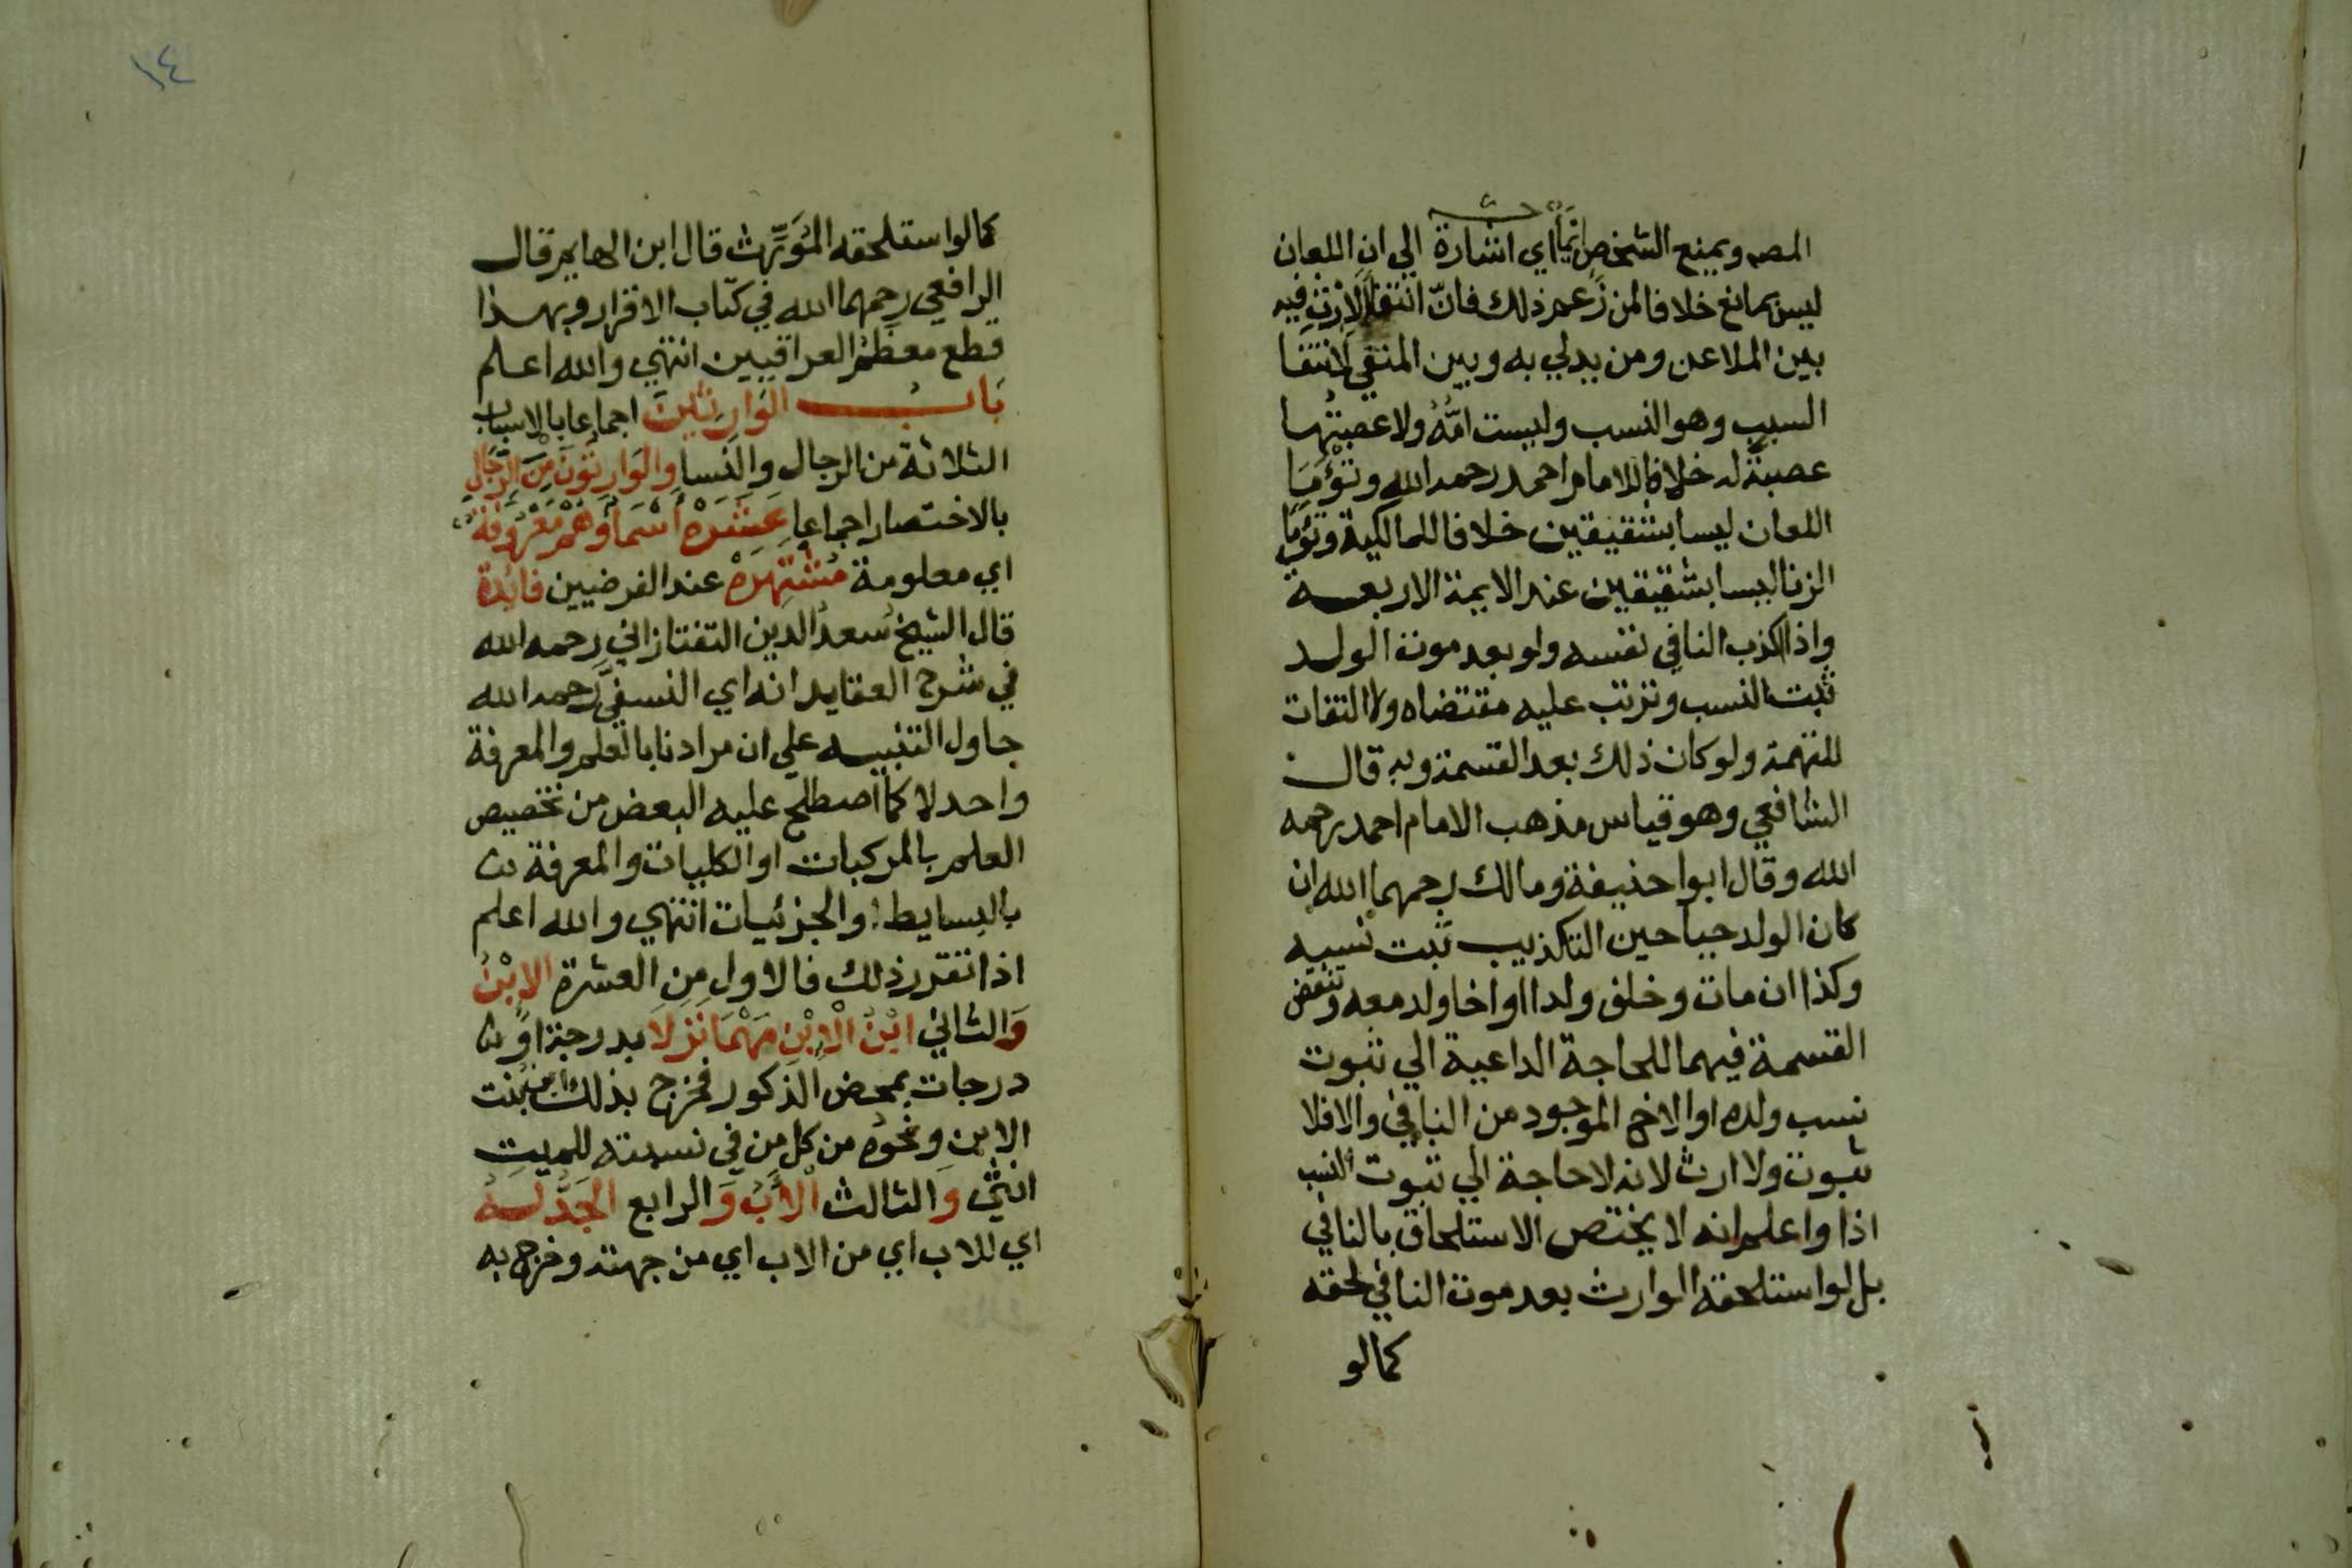 المصـ ويمنع الشخص انماء اي اشارة الي ان اللعان
ليس بمانع خلافا لمن زعم ذلك فانّ انتفا الارث فيه
بين الملاعن ومن يدلي به وبين المنفي لانتفا
السبب وهو النسب وليست امُّهُ ولا عصبتُها
عصبةً له خلافا للامام احمد رحمه الله وتَوْءَمَا
اللعان ليسا بشقيقين خلافا للمالكية وتوءما
الزنا ليسا بشقيقين عند الايمة الاربعـــة
واذا اكذب النافي نفسه ولو بعد موت الولد
ثبت النسب وترتب عليه مقتضاه ولا التفات
للتهمة ولو كان ذلك بعد القسمة وبه قال
الشافعي وهو قياس مذهب الامام احمد رحمه
الله وقال ابوا حنيفة ومالك رحمهما الله ان
كان الولد حيا حين التكذيب ثبت نسبه
وكذا ان مات وخلف ولدا او اخا ولد معه وتنقض
القسمة فيهما للحاجة الداعية الي ثبوت
نسب ولده او الاخ الموجود من النافي والا فلا
ثبوت ولا ارث لانه لا حاجة الي ثبوت النسب
اذا واعلم انه لا يختص الاستلحاق بالنافي
بل لو استلحقه الوارث بعد موت النافي لحقه
كما لو
١٤
كما لو استلحقه المُوَرِّث قال ابن الهايم قال
الرافعي رحمهما الله في كتاب الاقرار وبهذا
قطع معظم العراقيين انتهي والله اعلم
بَابُ الوَارِثِينَ اجماعا بالاسباب
الثلاثة من الرجال والنسا وَالوَارِثُونَ مِنَ الرِّجَالِ
بالاختصار اجماعا عَشَرَهْ أَسْمَاؤُهُمْ مَعْرُوفَةٌ
اي معلومة مُشْتَهِرَهْ عند الفرضيين فائدة
قال الشيخ سعد الدين التفتازاني رحمه الله
في شرح العقايد انه اي النسفي رحمه الله
حاول التنبيه علي ان مرادنا بالعلم والمعرفة
واحد لا كما اصطلح عليه البعض من تخصيص
العلم بالمركبات او الكليات والمعرفة
بالبسايط او الجزئيات انتهي والله اعلم
اذا تقرر ذلك فالاول من العشرة الابْنُ
وَالثاني ابْنُ الْابْنِ مَهْمَا نَزَلَا بدرجة او
درجات بمحض الذكور فخرج بذلك ابن بنت
الابن ونحوه من كل من في نسبته للميت
انثي وَالثالث الْأَبُ وَالرابع الجَدُّ لَهُ
اي للاب اي من الاب اي من جهته وخرج به